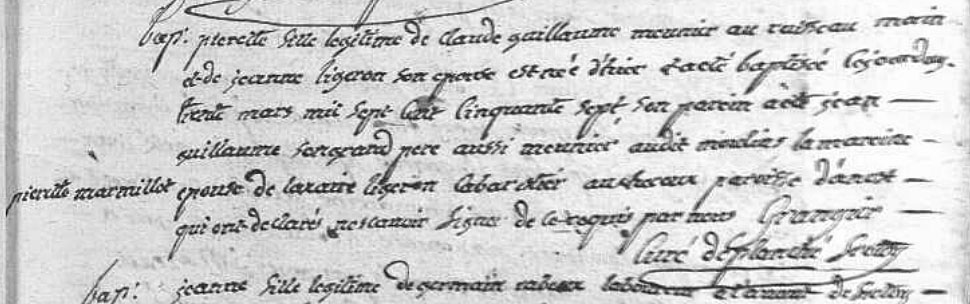 bap. pierette fille legitime de claude guillaume meunier au ruisseau main
et de jeanne ligeron son epouse est née d'hier et a été baptisée cejourduy
trente mars mil sept cent cinquante sept son parein a été jean
guillaume son grand pere aussi meunier audit moulins la mareine
pierette marmillot epouse de lazaire ligeron cabartier paroisse d'anost
qui ont declarés ne scavoir signer de ce requis par nous Grangier
curé
bap. jeanne fille legitime de germain laboureur